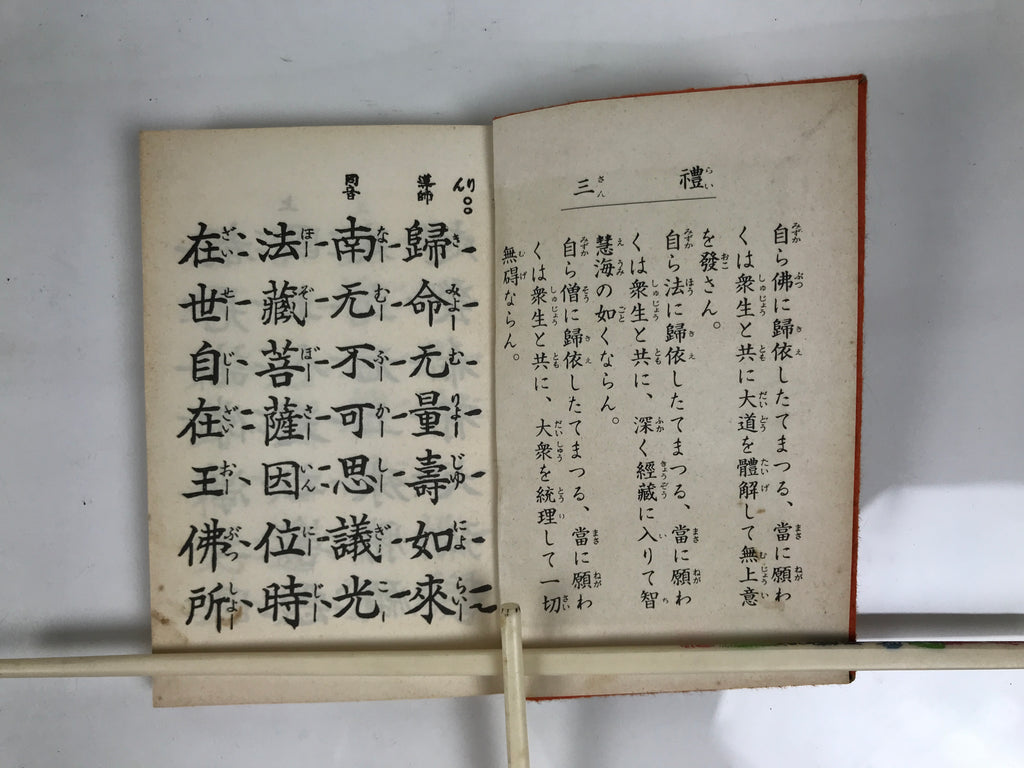 禮三
自ら佛に歸依したてまつる、當に願わ
くは衆生と共に大道を體解して無上意
を發さん。
自ら法に歸依したてまつる、當に願わ
くは衆生と共に、深く經藏に入りて智
慧海の如くならん。
自ら僧に歸依したてまつる、當に願わ
くは衆生と共に、大衆を統理して一切
無碍ならん。
りん○○
導師
歸命无量壽如來
同音
南无不可思議光
法藏菩薩因位時
在世自在王佛所